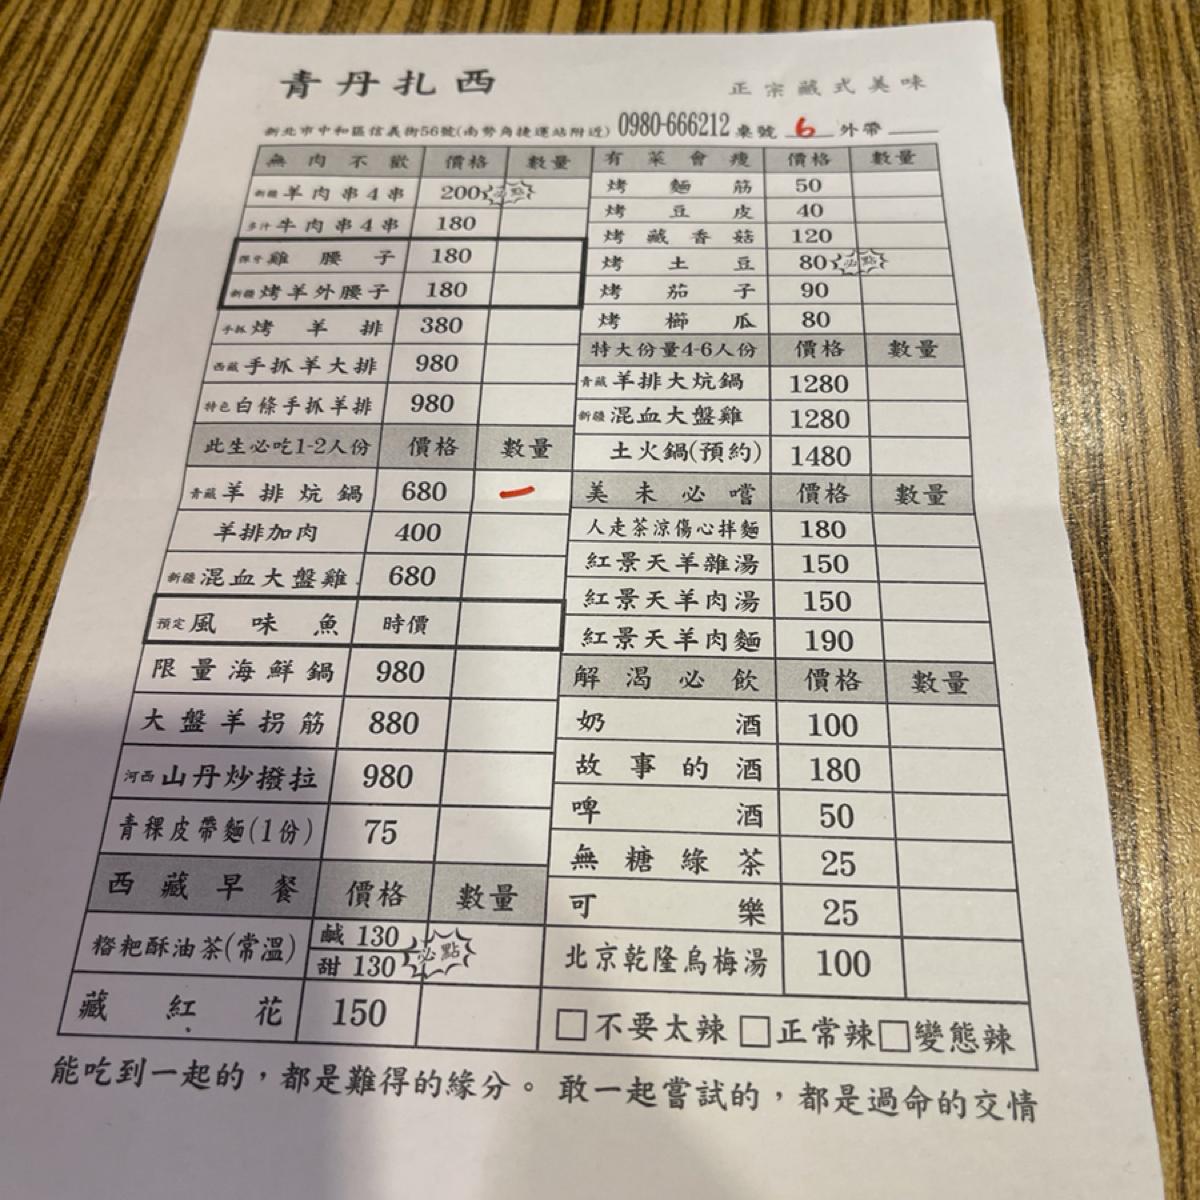 青丹扎西 正宗藏式美味
新北市中和區信義街56號(南勢角捷運站附近) 0980-666212 桌號 6 外帶
無肉不歡 價格 數量
新疆羊肉串4串 200 必點
多汁牛肉串4串 180
彈牙雞腰子 180
新疆烤羊外腰子 180
手抓烤羊排 380
西藏手抓羊大排 980
特色白條手抓羊排 980
此生必吃1-2人份 價格 數量
青藏羊排炕鍋 680 一
羊排加肉 400
新疆混血大盤雞 680
預定風味魚 時價
限量海鮮鍋 980
大盤羊拐筋 880
河西山丹炒撥拉 980
青稞皮帶麵(1份) 75
西藏早餐 價格 數量
糌粑酥油茶(常溫) 鹹 130 必點
甜 130
藏紅花 150
有菜會瘦 價格 數量
烤麵筋 50
烤豆皮 40
烤藏香菇 120
烤土豆 80 必點
烤茄子 90
烤櫛瓜 80
特大份量4-6人份 價格 數量
青藏羊排大炕鍋 1280
新疆混血大盤雞 1280
土火鍋(預約) 1480
美未必嚐 價格 數量
人走茶涼傷心拌麵 180
紅景天羊雜湯 150
紅景天羊肉湯 150
紅景天羊肉麵 190
解渴必飲 價格 數量
奶酒 100
故事的酒 180
啤酒 50
無糖綠茶 25
可樂 25
北京乾隆烏梅湯 100
□不要太辣 □正常辣 □變態辣
能吃到一起的，都是難得的緣分。敢一起嘗試的，都是過命的交情